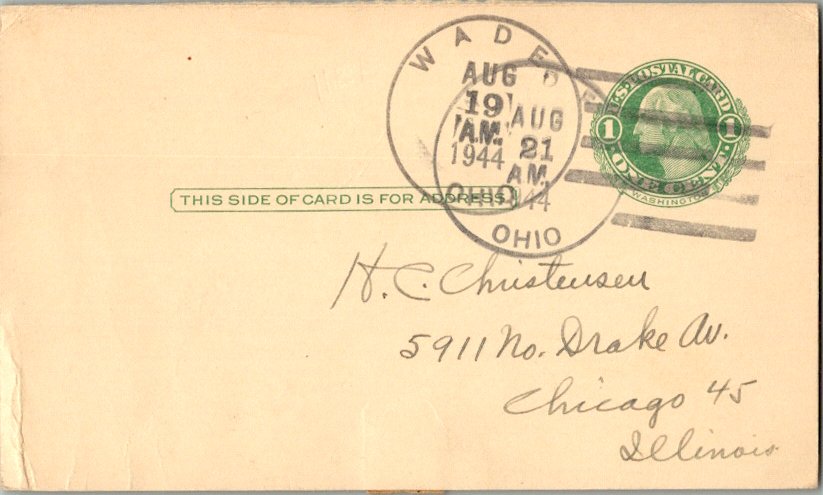 WADE
OHIO
AUG
19
A.M.
1944
AUG
21
A.M.
1944
OHIO
U.S. POSTAL CARD
1 1
ONE CENT
WASHINGTON
THIS SIDE OF CARD IS FOR ADDRESS
H. C. Christensen
5911 No. Drake Av.
Chicago 45
Illinois